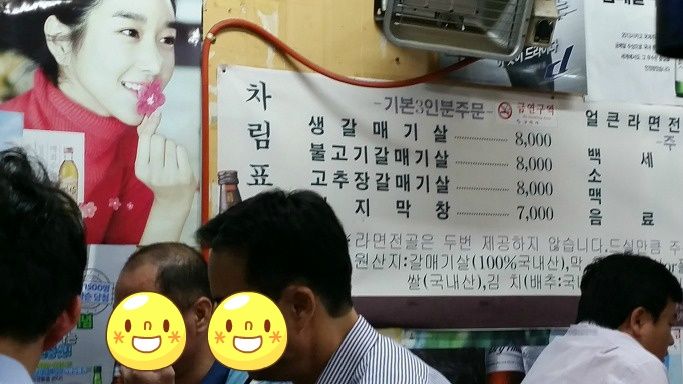 차림표
-기본3인분주문-
금연구역
생갈매기살 8,000
불고기갈매기살 8,000
고추장갈매기살 8,000
지막창 7,000
얼큰라면전
-주
백세
소
맥
음료
라면전골은 두번 제공하지 않습니다.드실만큼 주
원산지:갈매기살(100%국내산),막
쌀(국내산),김 치(배추:국내